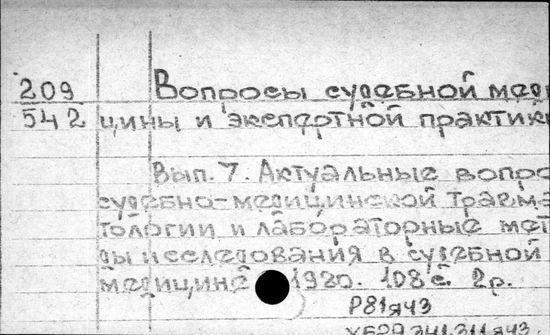 209
542
Вопросы судебной мед
цины и экспертной практик
Вып. 7. Актуальные вопро
судебно-медицинской травма
тологии и лабораторные мет
ды исследования в судебной
медицине 1980. 108 с. 2р.
Р81я43
ХБ29.341.311я43